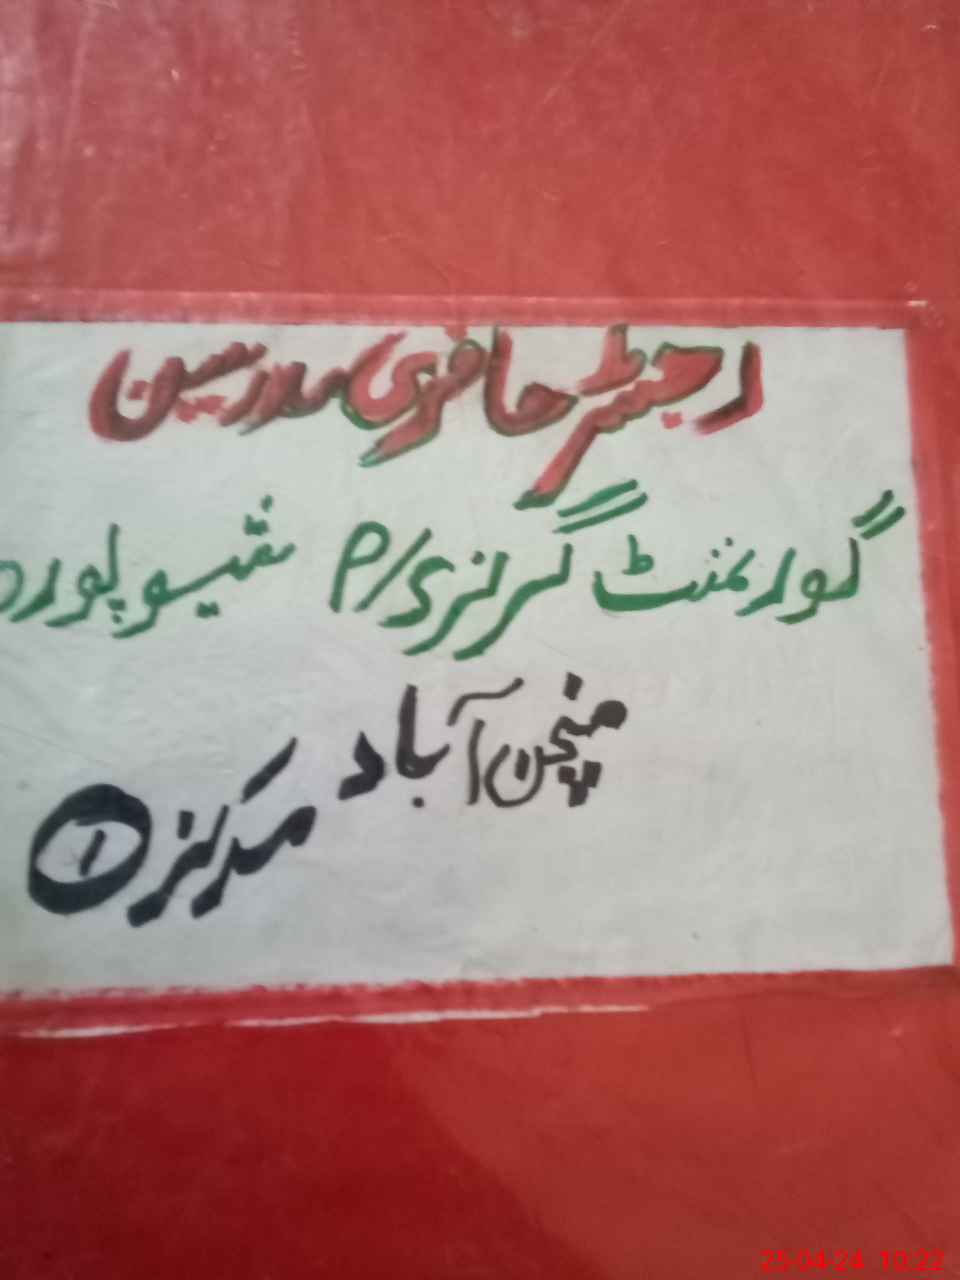 رجسٹر حاضری مدرسین
گورنمنٹ گرلز ی/م شیو پورہ
منچن آباد
مرکز ①
25-04-24 10:22